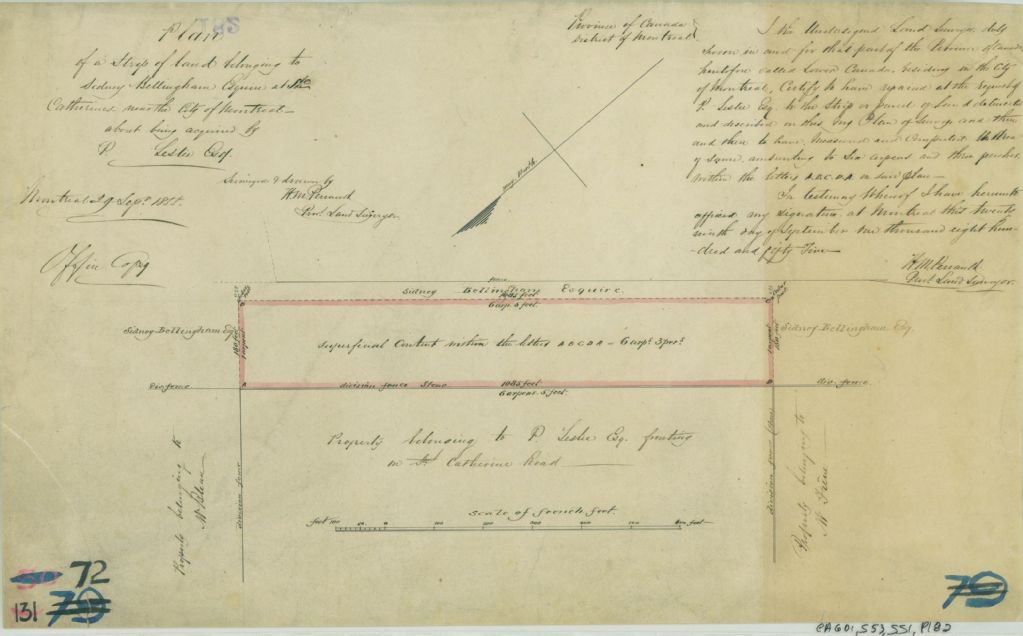 Plan
of a Strip of land belonging to
Sidney Bellingham Esquire at Ste
Catherines near the City of Montreal
about being acquired by
P. Leslie Esq.
Surveyed & drawn by
H.M. Perrault
Prov. Land Surveyor
Montreal 29 Sept. 1855.
Office Copy
Province of Canada
District of Montreal
I the Undersigned Land Surveyor duly
sworn in and for that part of the Province of Canada
heretofore called Lower Canada, residing in the City
of Montreal, Certify to have repaired at the request of
P. Leslie Esq. to the Strip or parcel of Land delineated
and described on this my Plan of Survey and there
and then to have measured and computed the Area
of same, amounting to Six arpens and three perches
within the letters A.B.C.D.A on said plan
In testimony Whereof I have hereunto
affixed my Signature, at Montreal this twenty
ninth day of September One thousand eight hun-
dred and fifty Five
H.M. Perrault
Provl. Land Surveyor.
Sidney Bellingham Esquire.
1085 feet
6 arp. 5 feet.
Sidney Bellingham Esq.
180 feet
Superficial Content within the letters A B C D A – 6 arps. 3 prs.
180 feet
Sidney Bellingham Esq.
Div. fence
A
division fence Stone
1085 feet
6 arpens. 5 feet.
D
div. fence.
Property belonging to P. Leslie Esq. fronting
on St. Catherine Road
Property belonging to
division fence
division fence
Property belonging to
Scale of french feet.
feet 100
100
200
300
400
feet
50
72
131
79
79
CA601, S53, SS1, P182